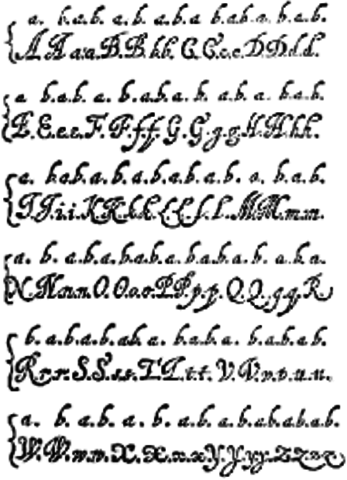 a. b.a.b. a. b. a. b.a b.a.b. a. b.a.b.
A A a.a.B.B b.b. C.C.c.c.D.D.d.d.
a b.a.b. a. b.a.b.a. b. a.b. a. b.a.b.
E.E.e.e.F.F.f.f. G.G.g.g.H.H.h.h.
a. b.a.b.a.b.a.b.a.b.a.b. a. b.a.b.
I.I.i.i.K.K.k.k.L.L.l.l.M.M.m.m.
a. b. a.b.a.b.a.b.a.b.a.b.a.b. a.b.a.
N.N.n.n.O.O.o.o.P.P.p.p.Q.Q.q.q.R
b. a.b.a.b.ab.a. b.a.b.a. b.a.b.a.b.
R.r.r.S.S.s.s.T.T.t.t. V.V.v.v.u.u.
a. b. a.b. a. b. a.b. a.b.a.b.a.b.a.b.
W.W.w.w.X.X.x.x.Y.Y.y.y.Z.Z.z.z.